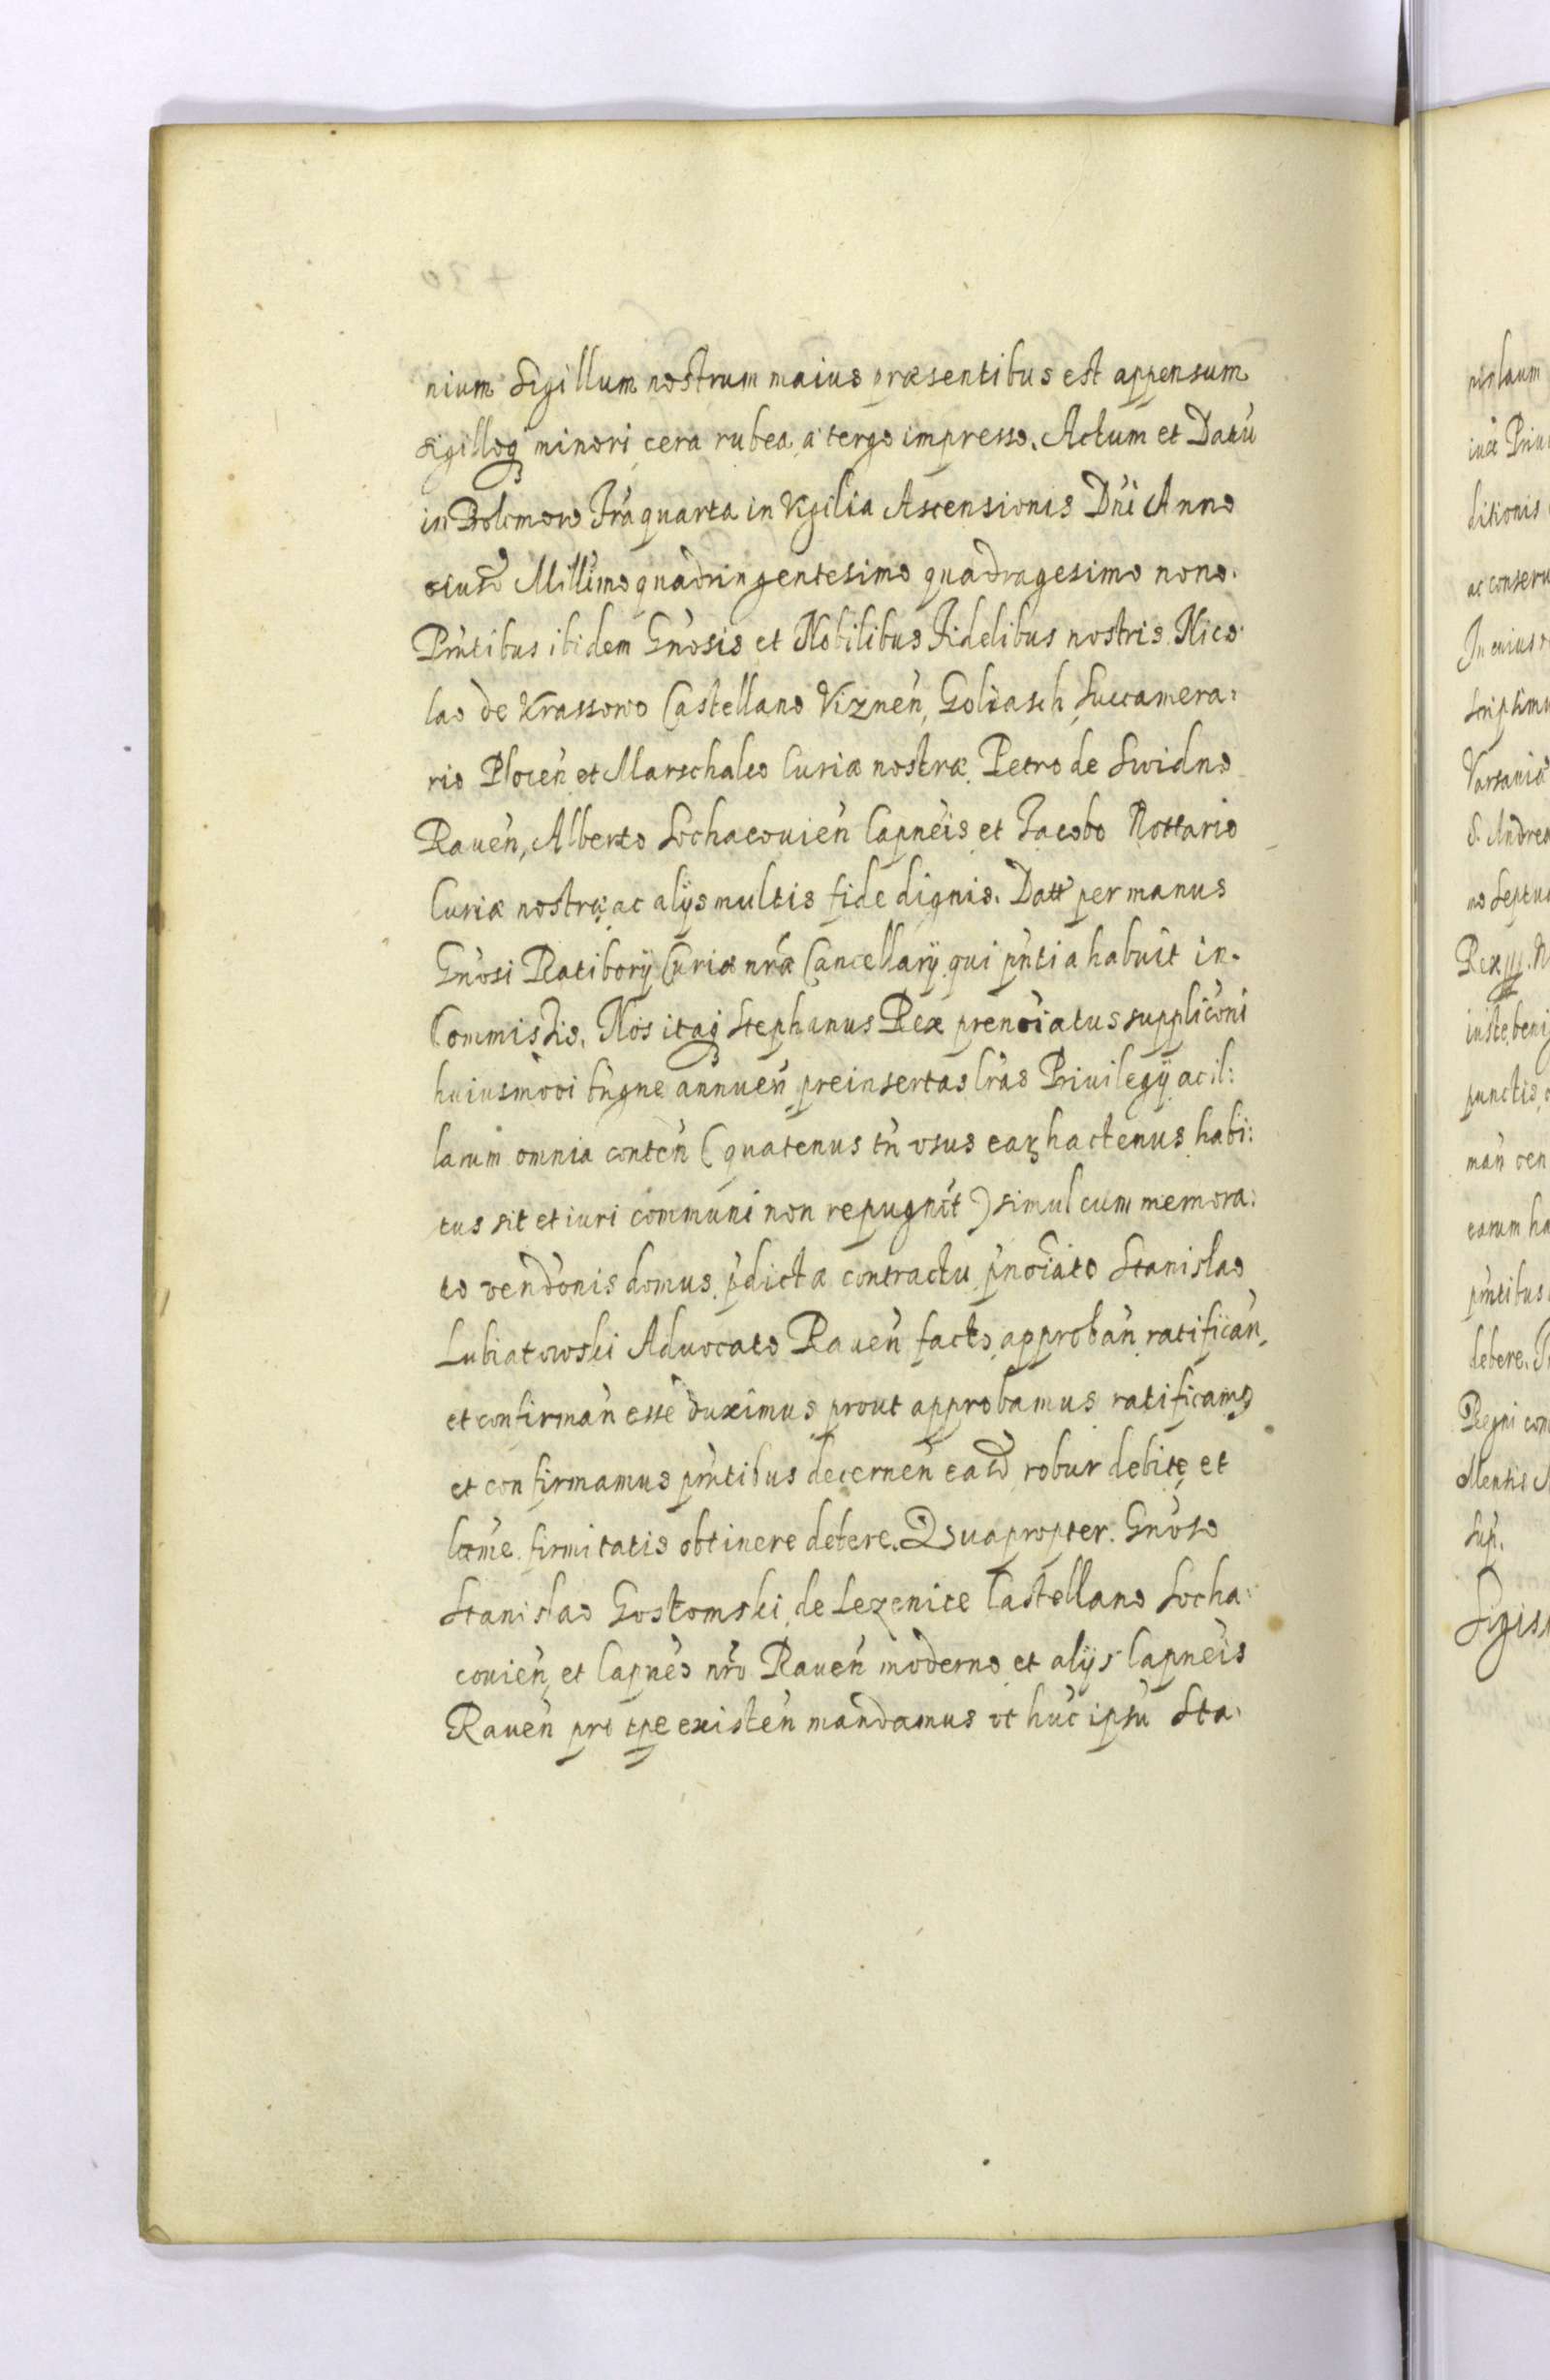 nium Sigillum nostrum maius præsentibus est appensum
sigilloq minori cera rubea a tergo impresso. Actum et Datū
in Bolemow Fra quarta in Vigilia Ascensionis Dni Anno
eiusd Millimo quadringentesimo quadragesimo nono.
Pntibus ibidem Gnosis et Nobilibus Fidelibus nostris Nico
lao de Krassowo Castellano Viznen, Goliasch Succamera:
rio Plocen et Marschalco Curiæ nostræ Petro de Swidno
Raven, Alberto Sochacouien Capneis et Jacobo Nottario
Curiæ nostræ ac alys multis fide dignis. Datt per manus
Gnosi Ratibory Curiæ nræ Cancellary qui pntia habuit in
Commissis. Nos itaq Stephanus Rex prenoiatus suppliconi
huiusmodi bngne annuen preinsertas lras Privilegy ac il:
larum omnia conten (quatenus tn usus earz hactenus habi:
tus sit et iuri communi non repugnet) simul cum memora:
to vendonis domus pdictæ contractu pnoiato Stanislao
Lubiatowski Advocato Raven facto approban ratifican,
et confirman esse duximus prout approbamus ratificamus
et confirmamus pntibus decernen easd robur debitę et
ltme firmitatis obtinere debere. Quapropter Gnoso
Stanislao Gostomski de Lezenice Castellano Socha:
covien et Capneo nro Raven moderno et alys Capneis
Raven pro tpe existen mandamus ut huc ipsu Sta:
+30
ditionis
ac conseru
In cuius r
Varsaviæ
S. Andrea
punctis
earum ha
pntibus
debere.
Regni con
Sigis